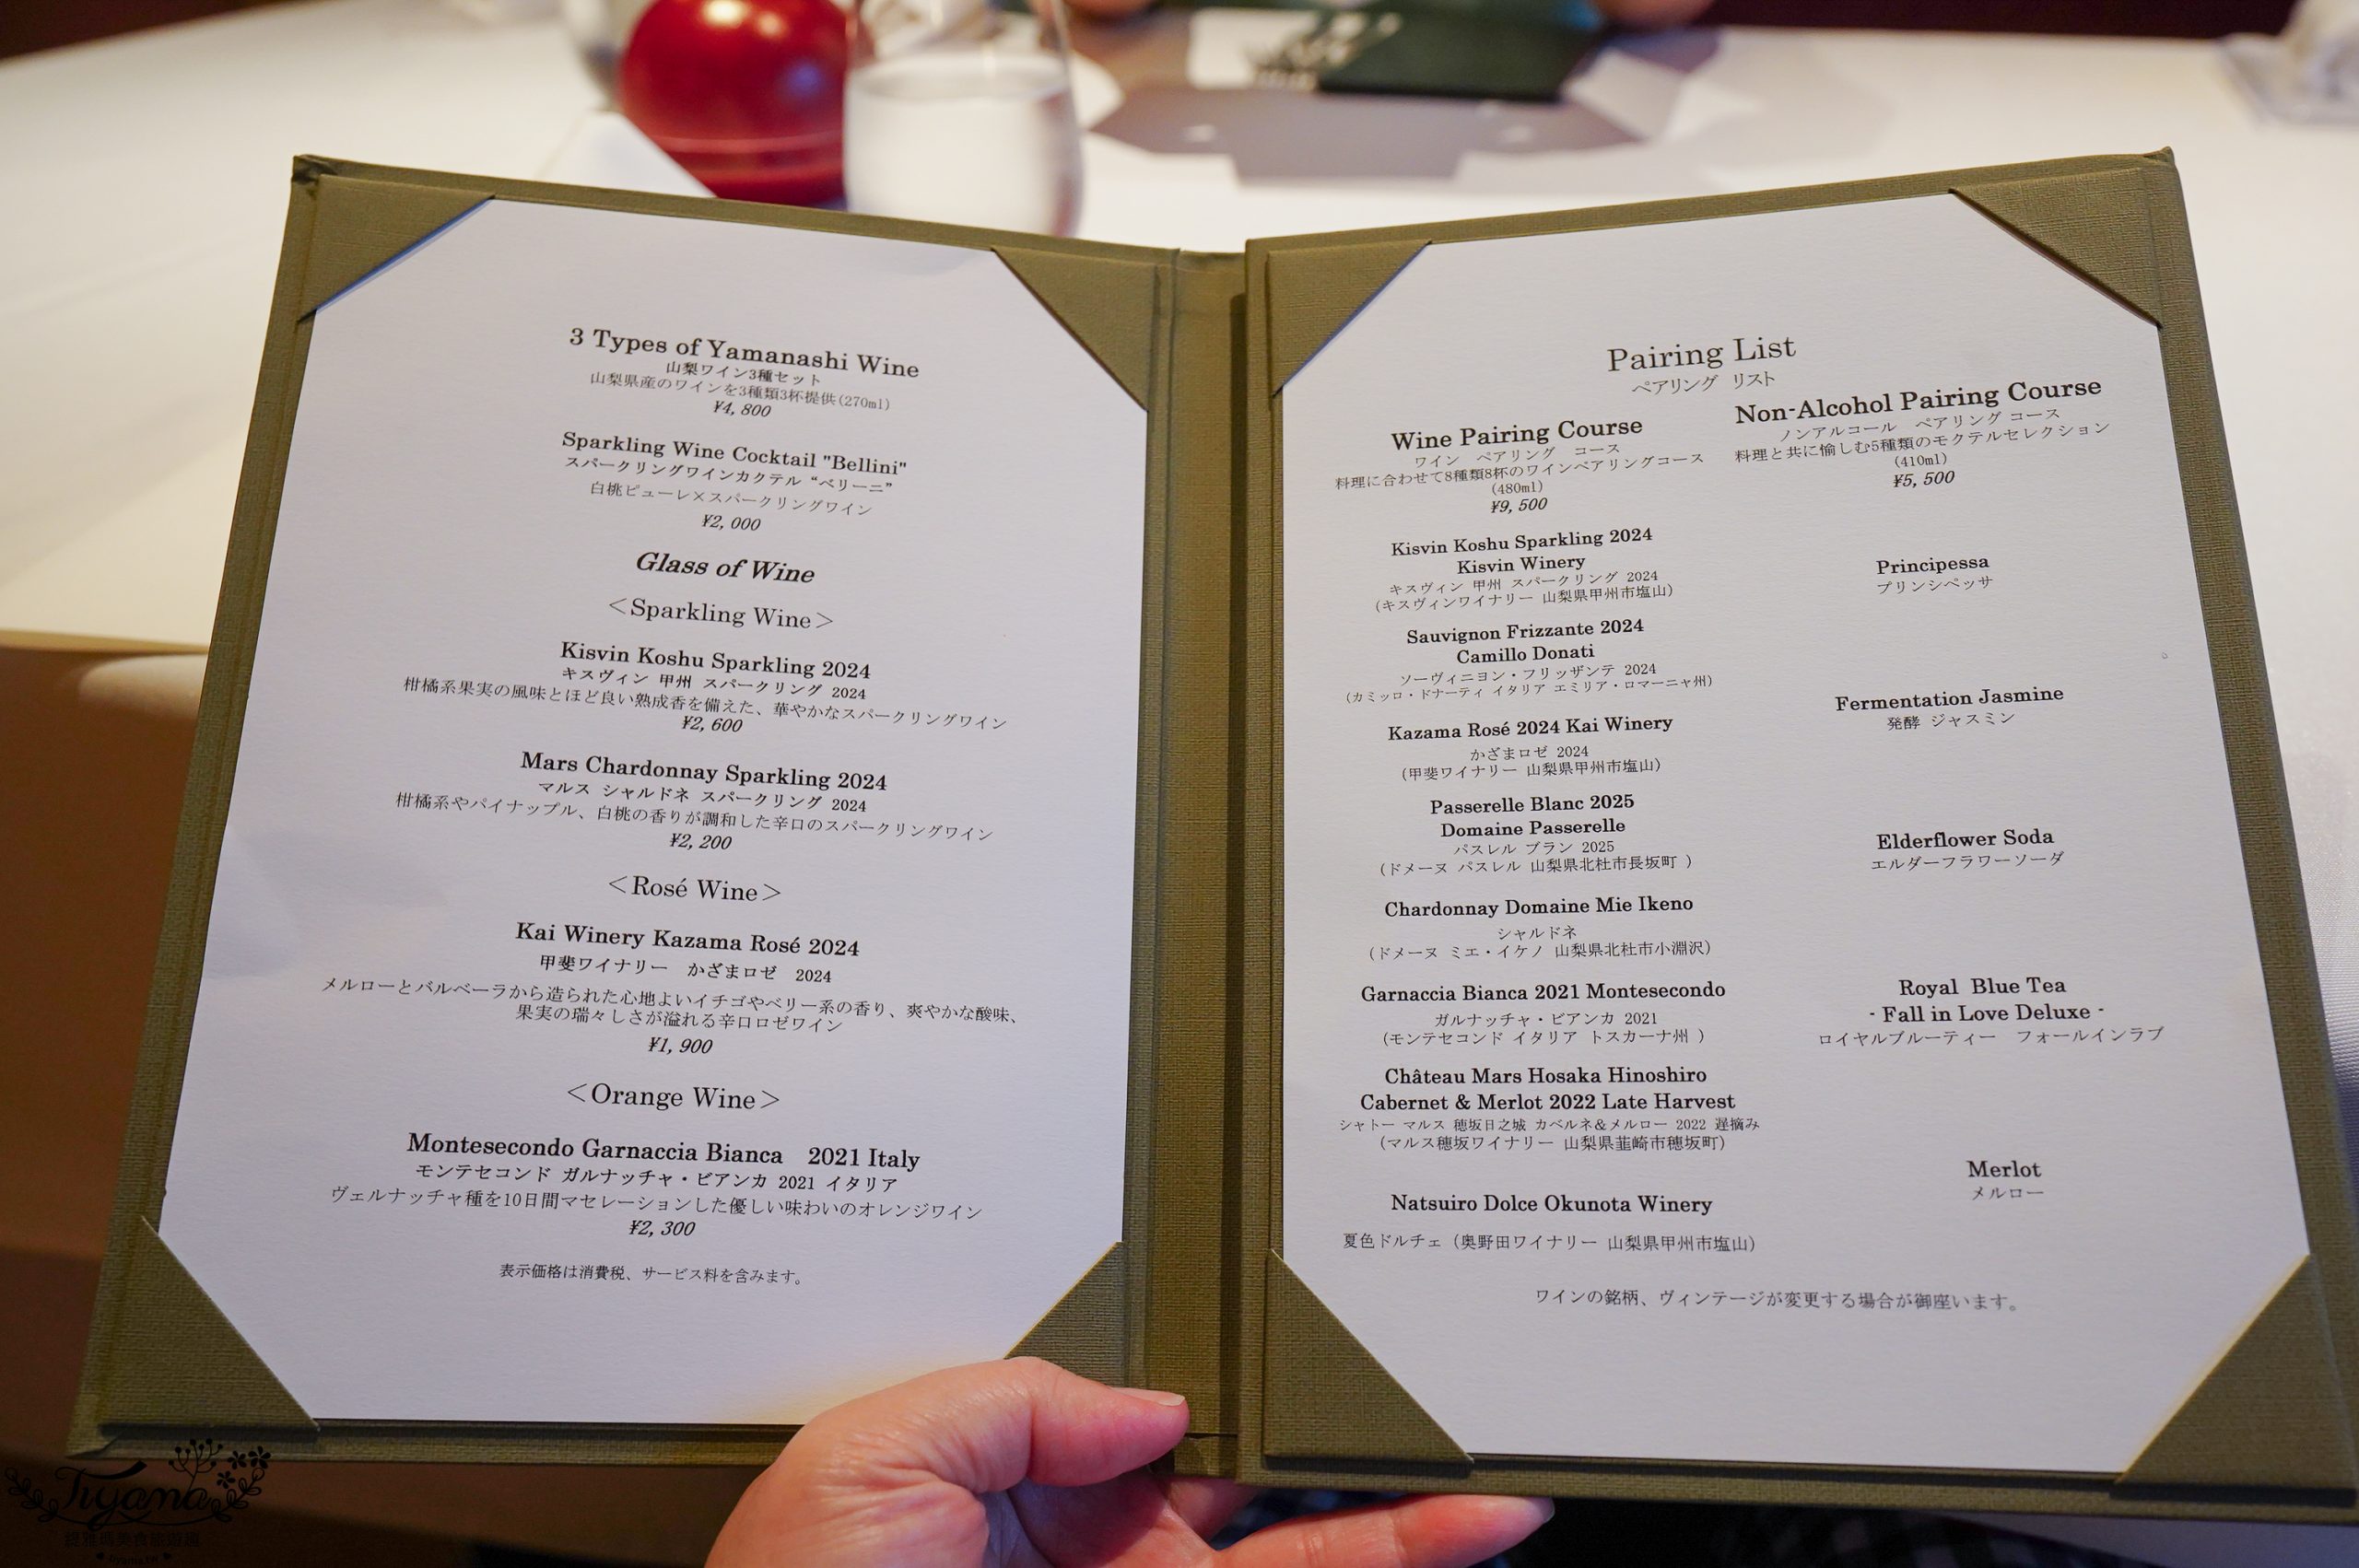 3 Types of Yamanashi Wine
山梨ワイン3種セット
山梨県産のワインを3種類3杯提供(270ml)
¥4,800
Sparkling Wine Cocktail "Bellini"
スパークリングワインカクテル “ベリーニ”
白桃ピューレ×スパークリングワイン
¥2,000
Glass of Wine
＜Sparkling Wine＞
Kisvin Koshu Sparkling 2024
キスヴィン 甲州 スパークリング 2024
柑橘系果実の風味とほど良い熟成香を備えた、華やかなスパークリングワイン
¥2,600
Mars Chardonnay Sparkling 2024
マルス シャルドネ スパークリング 2024
柑橘系やパイナップル、白桃の香りが調和した辛口のスパークリングワイン
¥2,200
＜Rosé Wine＞
Kai Winery Kazama Rosé 2024
甲斐ワイナリー　かざまロゼ　2024
メルローとバルベーラから造られた心地よいイチゴやベリー系の香り、爽やかな酸味、
果実の瑞々しさが溢れる辛口ロゼワイン
¥1,900
＜Orange Wine＞
Montesecondo Garnaccia Bianca　2021 Italy
モンテセコンド ガルナッチャ・ビアンカ 2021 イタリア
ヴェルナッチャ種を10日間マセレーションした優しい味わいのオレンジワイン
¥2,300
表示価格は消費税、サービス料を含みます。
Pairing List
ペアリング リスト
Wine Pairing Course
ワイン　ペアリング　コース
料理に合わせて8種類8杯のワインペアリングコース
(480ml)
¥9,500
Kisvin Koshu Sparkling 2024
Kisvin Winery
キスヴィン 甲州 スパークリング 2024
(キスヴィンワイナリー 山梨県甲州市塩山)
Sauvignon Frizzante 2024
Camillo Donati
ソーヴィニヨン・フリッザンテ 2024
(カミッロ・ドナーティ イタリア エミリア・ロマーニャ州)
Kazama Rosé 2024 Kai Winery
かざまロゼ 2024
(甲斐ワイナリー 山梨県甲州市塩山)
Passerelle Blanc 2025
Domaine Passerelle
パスレル ブラン 2025
(ドメーヌ パスレル 山梨県北杜市長坂町 )
Chardonnay Domaine Mie Ikeno
シャルドネ
(ドメーヌ ミエ・イケノ 山梨県北杜市小淵沢)
Garnaccia Bianca 2021 Montesecondo
ガルナッチャ・ビアンカ 2021
(モンテセコンド イタリア トスカーナ州 )
Château Mars Hosaka Hinoshiro
Cabernet & Merlot 2022 Late Harvest
シャトー マルス 穂坂日之城 カベルネ&メルロー 2022 遅摘み
(マルス穂坂ワイナリー 山梨県韮崎市穂坂町)
Natsuiro Dolce Okunota Winery
夏色ドルチェ (奥野田ワイナリー 山梨県甲州市塩山)
Non-Alcohol Pairing Course
ノンアルコール　ペアリング コース
料理と共に愉しむ5種類のモクテルセレクション
(410ml)
¥5,500
Principessa
プリンシペッサ
Fermentation Jasmine
発酵 ジャスミン
Elderflower Soda
エルダーフラワーソーダ
Royal Blue Tea
- Fall in Love Deluxe -
ロイヤルブルーティー　フォールインラブ
Merlot
メルロー
ワインの銘柄、ヴィンテージが変更する場合が御座います。
Tiyama
tiyama.tw